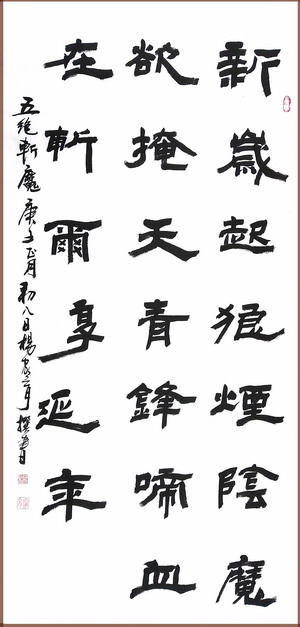 新歲起狼煙陰魔
欲掩天青鋒啼血
在斬爾享延年
五絕斬魔 庚子正月初八日楊 撰書